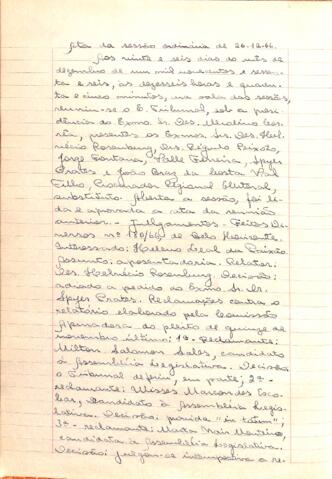 Ata da sessão ordinária de 26-12-66.
Aos vinte e seis dias do mês de
dezembro de um mil novecentos e sessen-
ta e seis, às dezesseis horas e quaren-
ta e cinco minutos, na sala das sessões,
reuniu-se o E. Tribunal, sob a presi-
dência do Exmo. Sr. Des.
presentes os Exmos. Srs. Des. Hel-
vécio Rosenburg, Drs. Régulo Peixoto,
Jorge Fontana, Valle Ferreira, Speyer
Prates e João Braz da Costa Val
Filho, Procurador Regional Eleitoral,
substituto. Aberta a sessão, foi li-
da e aprovada a ata da reunião
anterior. - Julgamentos - Feitos Di-
versos nº 180/66 de Belo Horizonte.
Interessado: Leal da Paixão.
Assunto: aposentadoria. Relator:
Des. Helvécio Rosenburg. Decisão:
adiado a pedido do Exmo. Sr. Dr.
Speyer Prates. Reclamações contra o
relatório elaborado pela Comissão
Apuradora do pleito de quinze de
novembro último: 1ª - Reclamante:
Milton Salomon Sales, candidato
à Assembléia Legislativa. Decisão:
o Tribunal deferiu, em parte; 2ª -
reclamante: Ulisses Marcondes Esco-
bar, candidato à Assembléia Legis-
lativa. Decisão: "in totum";
3ª - reclamante: Marta Nair Monteiro,
candidata à Assembléia Legislativa.
Decisão: julgou-se intempestiva a re-